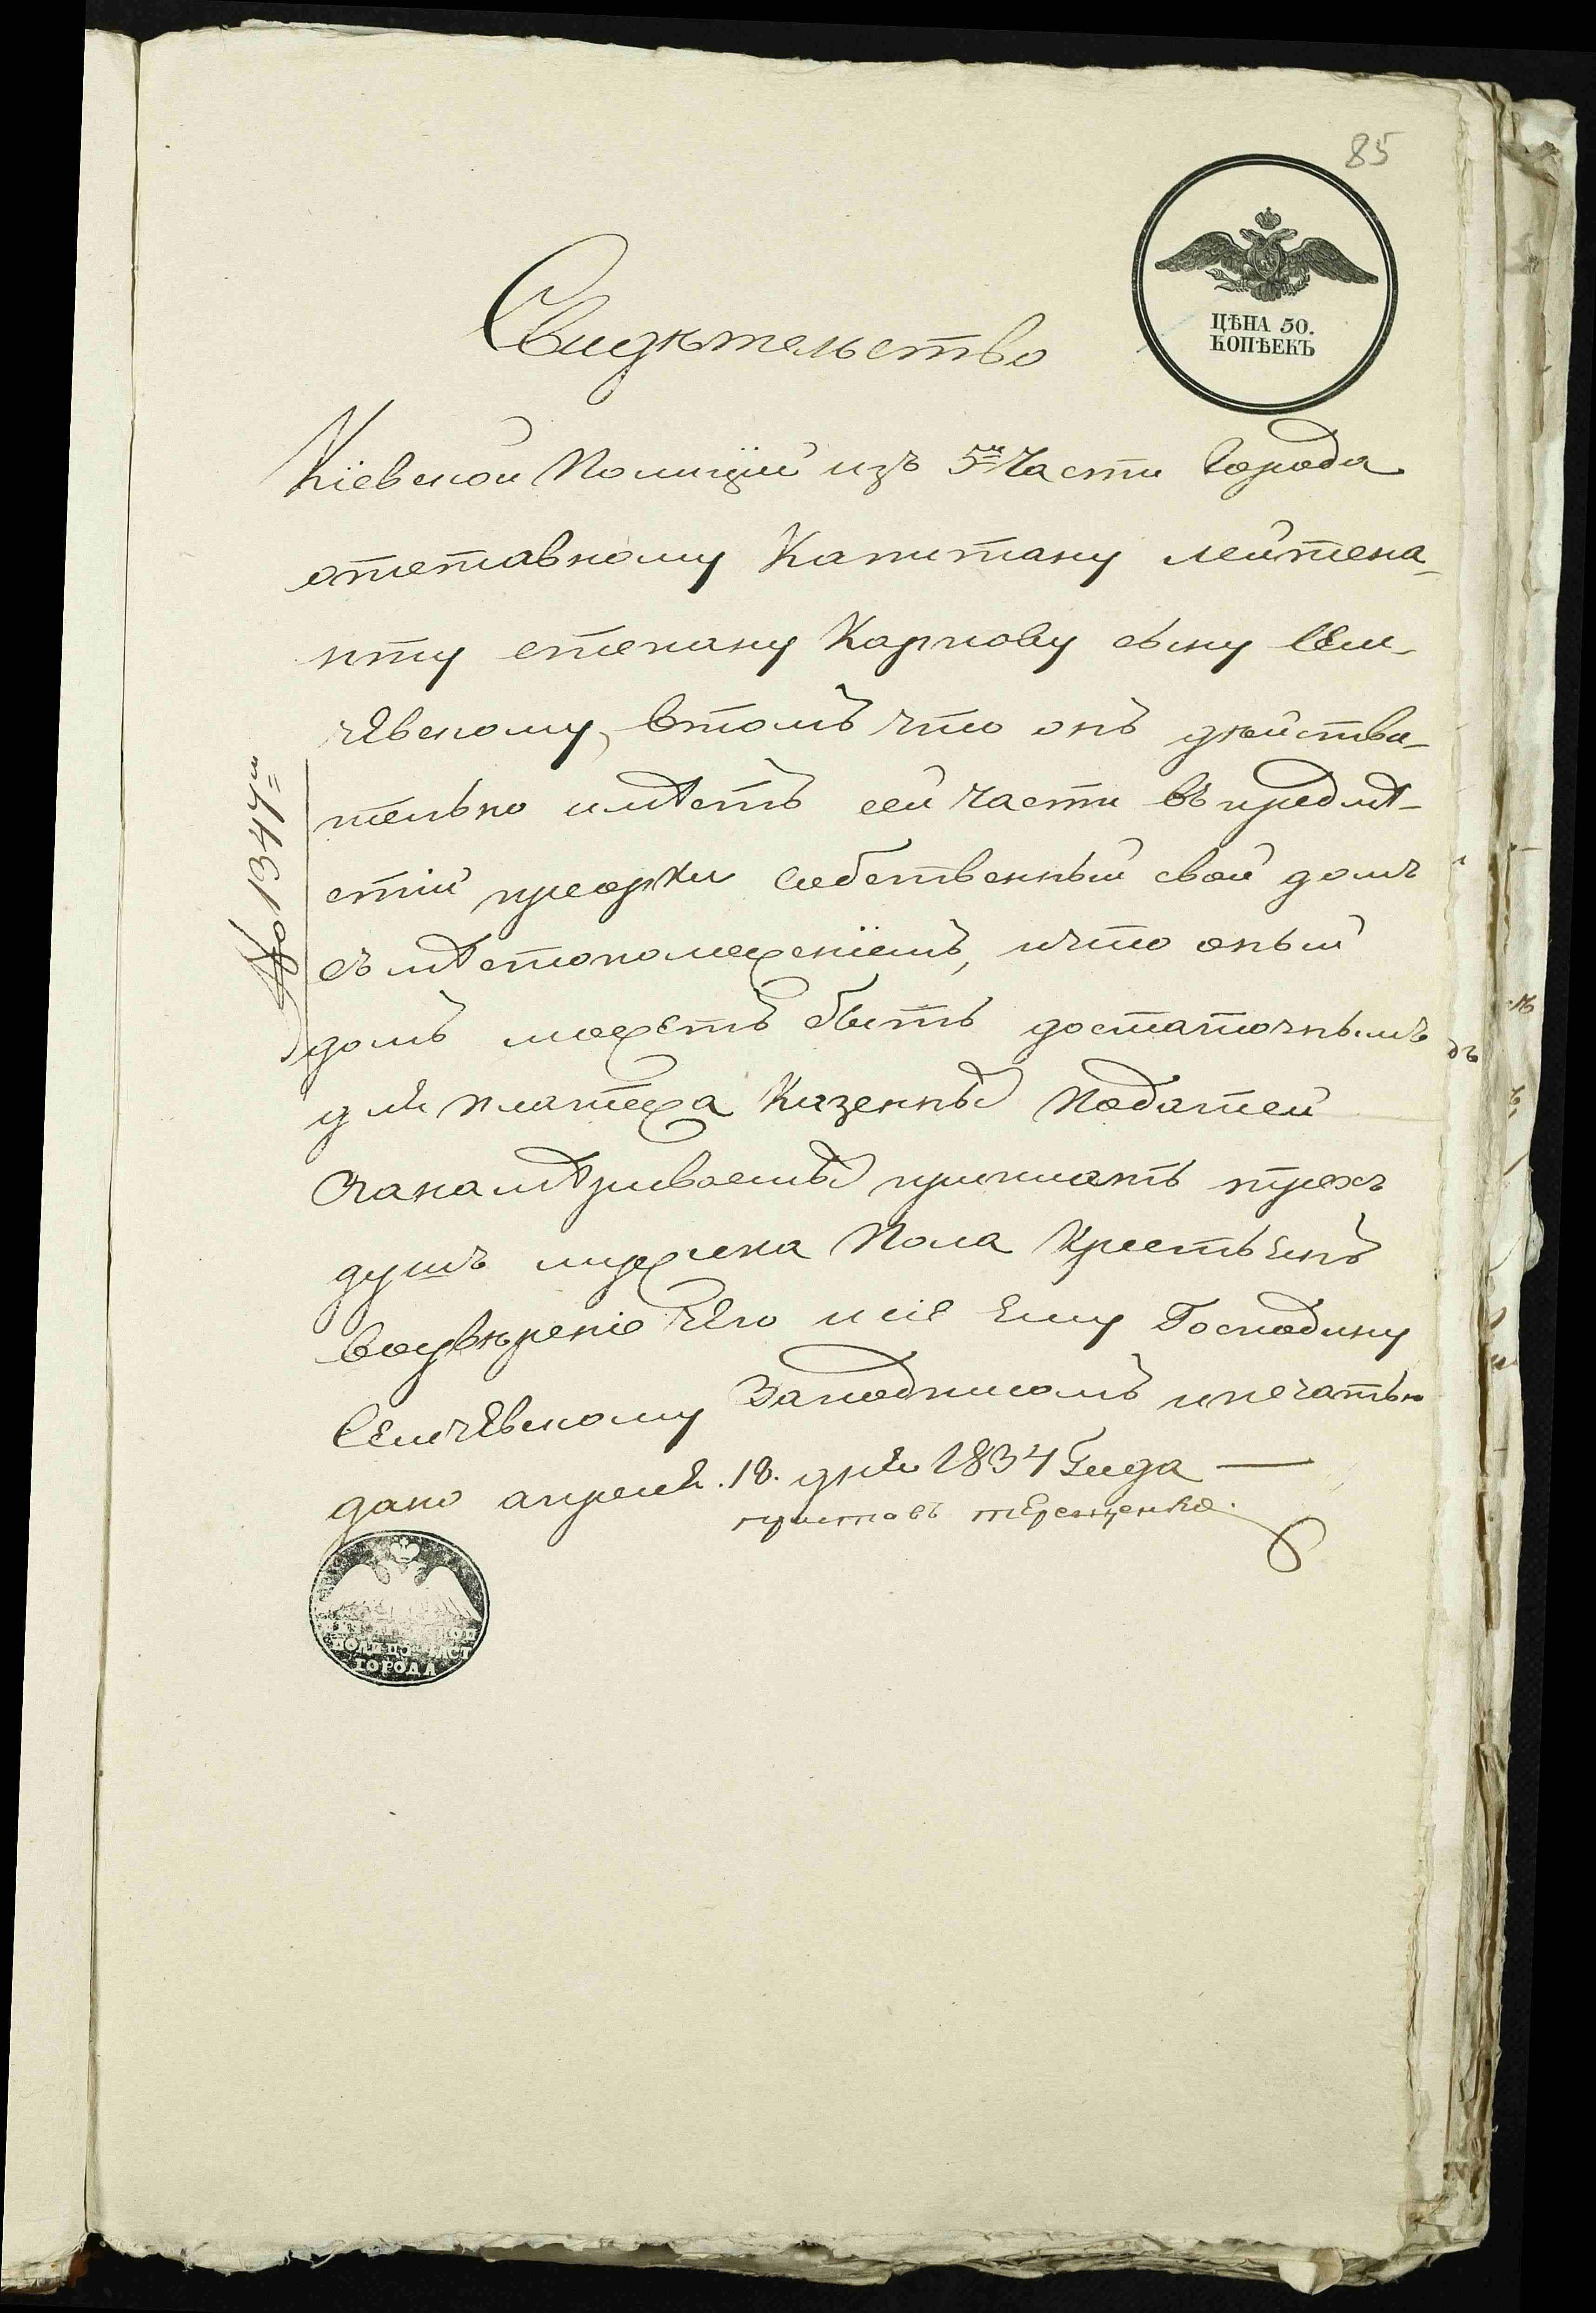 85
ЦѢНА 50.
КОПѢЕКЪ
Свидѣтельство
Кіевской Полиціи изъ 5й Части Города
отставному Капитану лейтена-
нту степану Карпову сыну Сем-
чевскому, втомъ что онъ дѣйстви-
тельно имѣетъ сей части въ предмѣ-
стіи собственный свой домъ
съ мѣстоположеніемъ, ичто оный
домъ можетъ быть достаточнымъ
для платежа Казенных Податей
занамѣриваемых принять трехъ
душъ мужеска Пола Крестьянъ
Его и сіе Ему Господину
Семчевскому Заподписомъ ипечатью
дано апреля. 18. дня 1834 Года
приставъ терещенко.
№ 1347
ГОРОДА